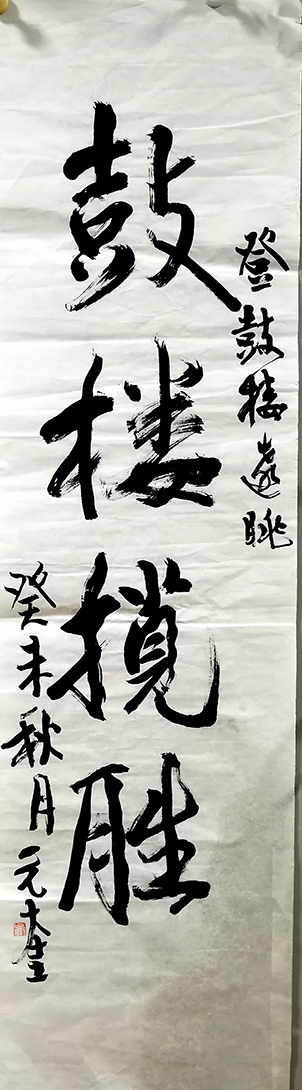 登鼓楼遠眺
鼓楼揽胜
癸未秋月元